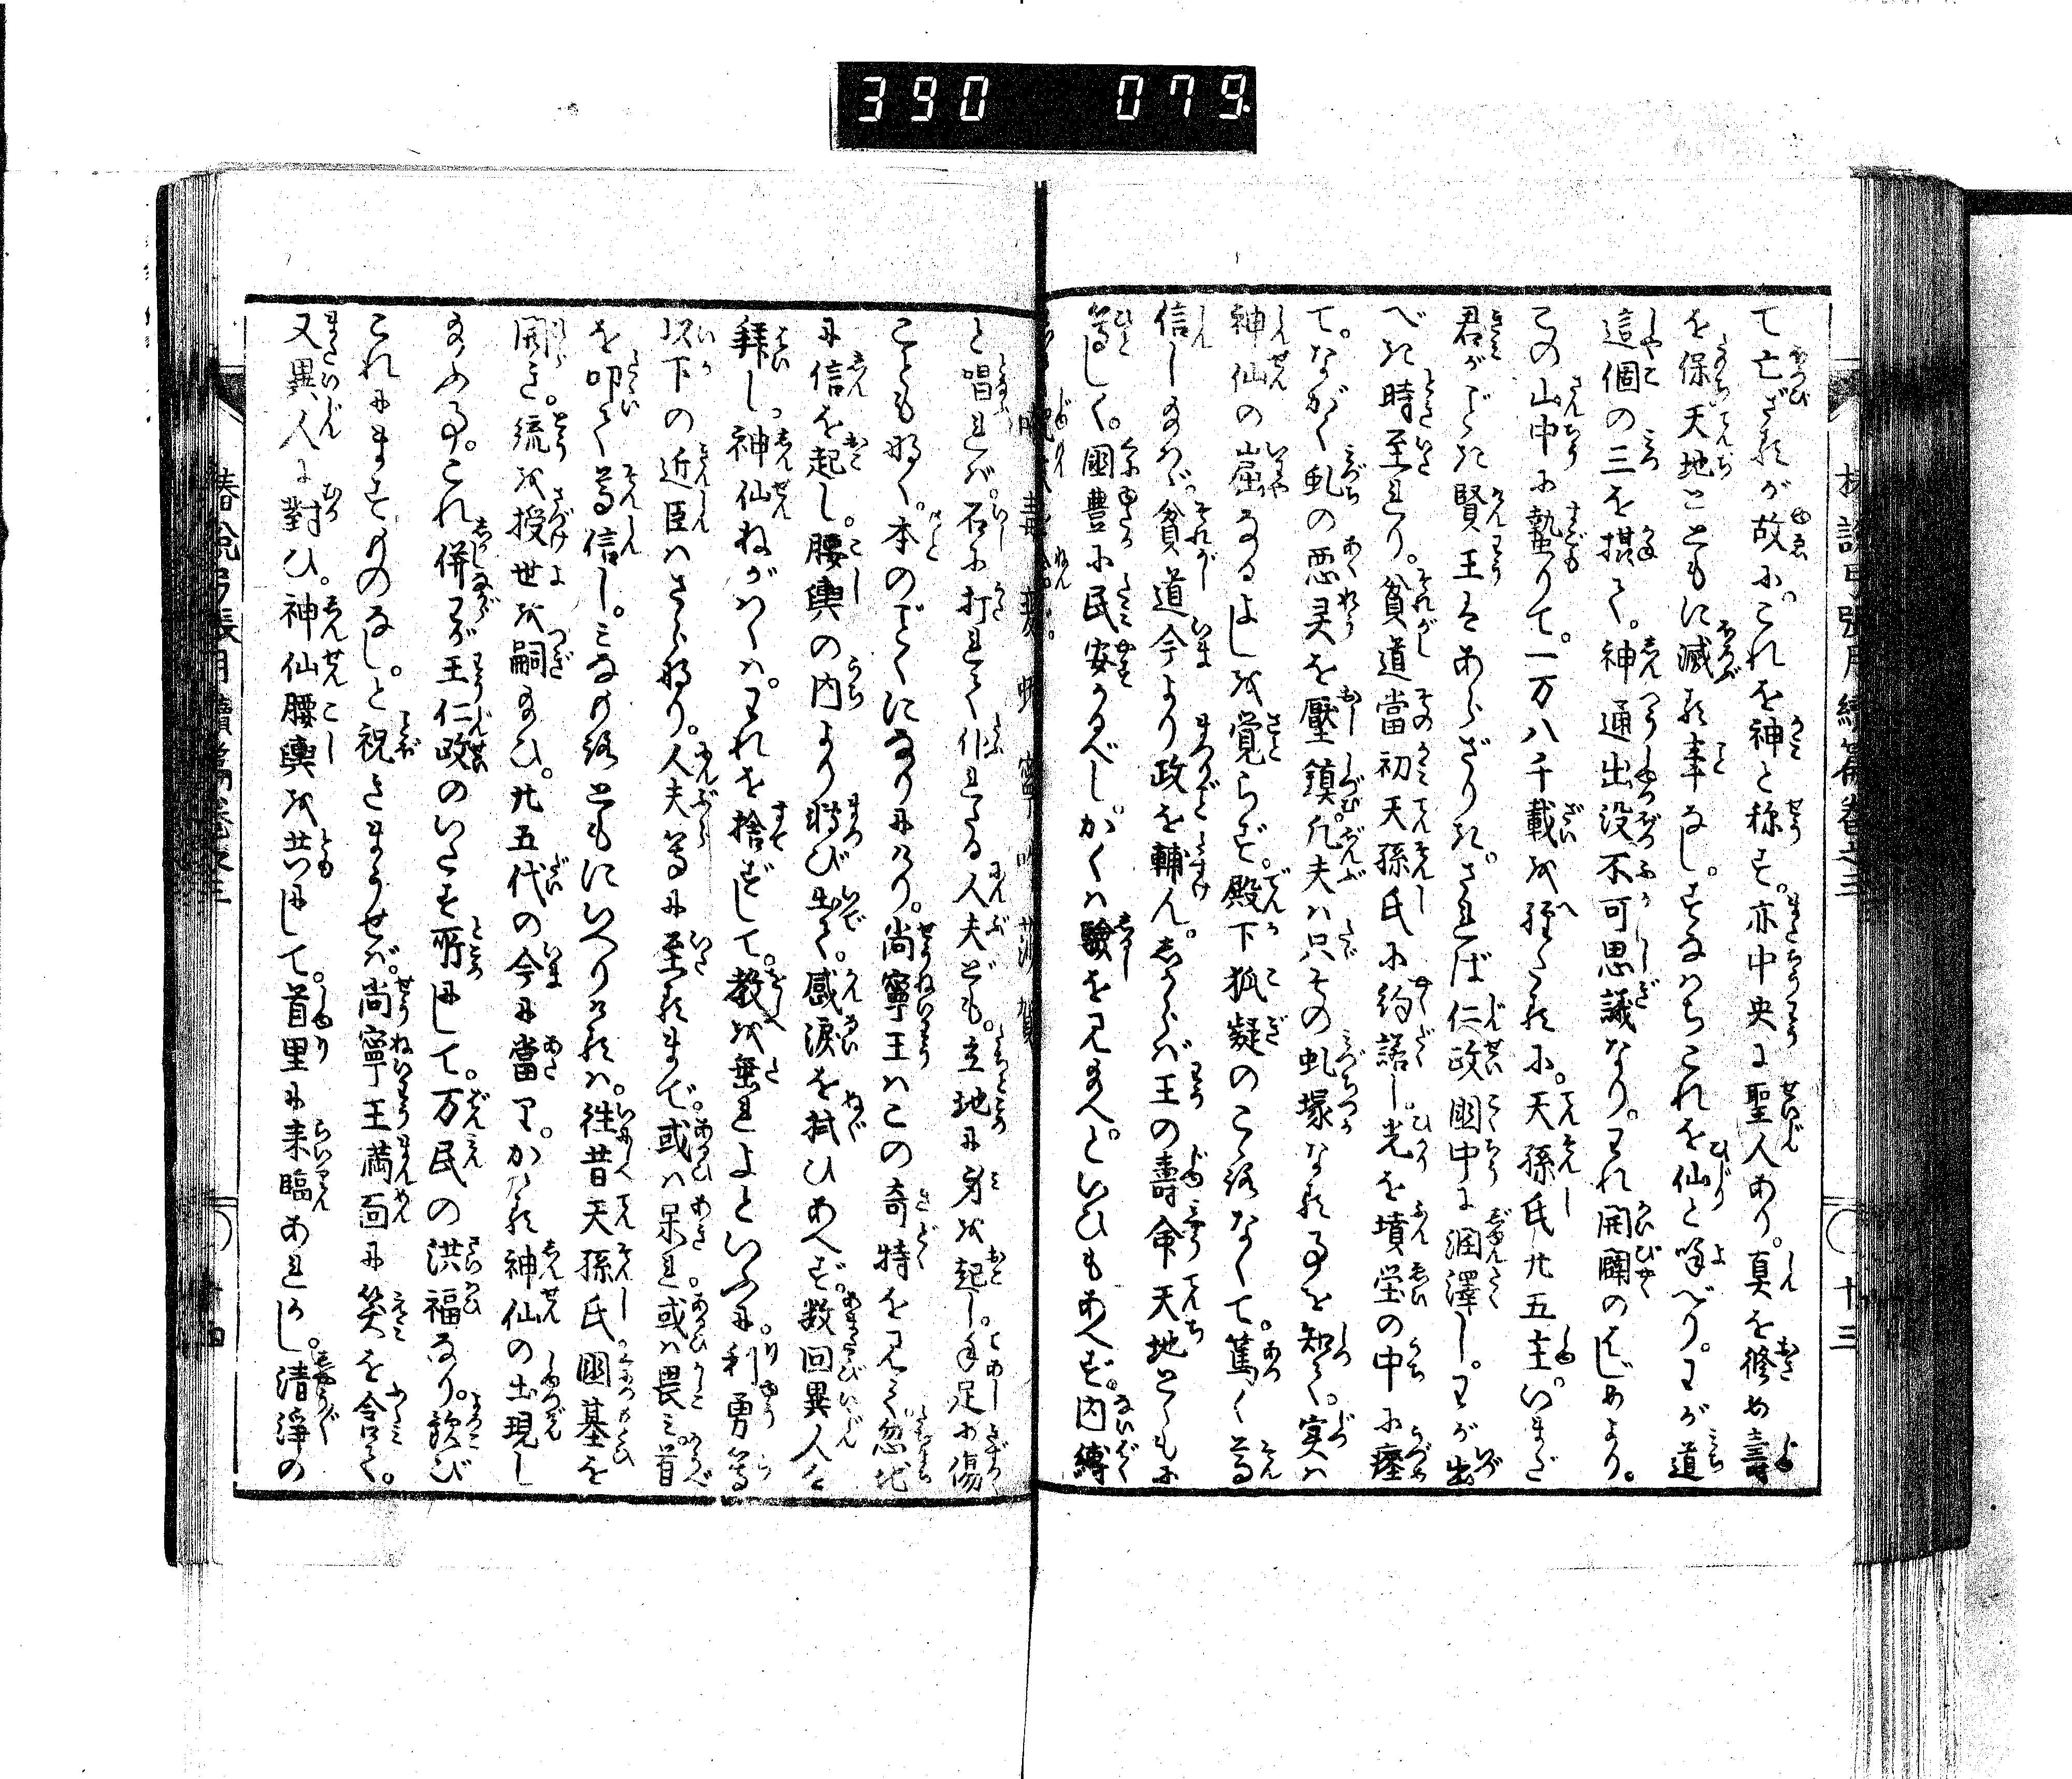 390 079.
て亡ざるが故に。これを神と称す。亦中央に聖人あり。真を修め壽
を保天地とともに滅る事なし。すなはちこれを仙と呼べり。わが道
這個の三を摂て。神通出没不可思議なり。われ開闢のはじめより。
この山中に蟄りて。一万八千載を経たるに。天孫氏廿五主。いまだ
君がごとき賢王はあらざりき。されば仁政国中に潤澤し。わが出
べき時至れり。貧道當初天孫氏に約諾し。光を墳塋の中に瘞
て。ながく虬の悪灵を壓鎮。凡夫は只その虬塚なる事を知て。実は
神仙の窟なるよしを覚らず。殿下狐疑のこゝろなくて。篤く尊
信し給はゞ。貧道今より政を輔ん。しからば王の壽命天地とゝもに
等しく。國豊に民安かるべし。かくは験を見給へ。といひもあへず。内縛
と唱れば。石に打れて仆れたる人夫ども。立地に身を起し。手足に傷
ことも物く。本のごとくになりにけり。尚寧王はこの奇特を見て忽地
に信を起し。腰輿の内より轉び出て。感涙を拭ひあへず。数回異人を
拝し。神仙ねがはくは。われを捨ずして。教を垂れよといふに。利勇等
以下の近臣はさら也。人夫等に至るまで。或は呆れ或は畏み。首
を叩て尊信し。みなもろともにいへりけるは。往昔天孫氏國基を
開き。統を授世を嗣給ひ。廿五代の今に當て。かゝる神仙の出現し
給ふ事。これ併わが王仁政のいたす所にして。万民の洪福なり。歓び
これにますものなし。と祝きまうせば。尚寧王満面に笑を含て。
又異人に對ひ。神仙腰輿を共にして。首里に来臨あれかし。清浄の
椿説弓張月續篇巻之三
十三